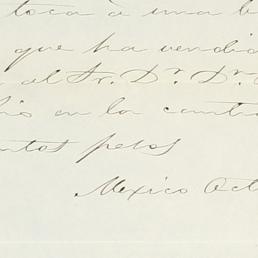 toca à una
que ha vendid
al Sr. Dr. Dr.
en los cont
ntos pesos
Mexico Oct